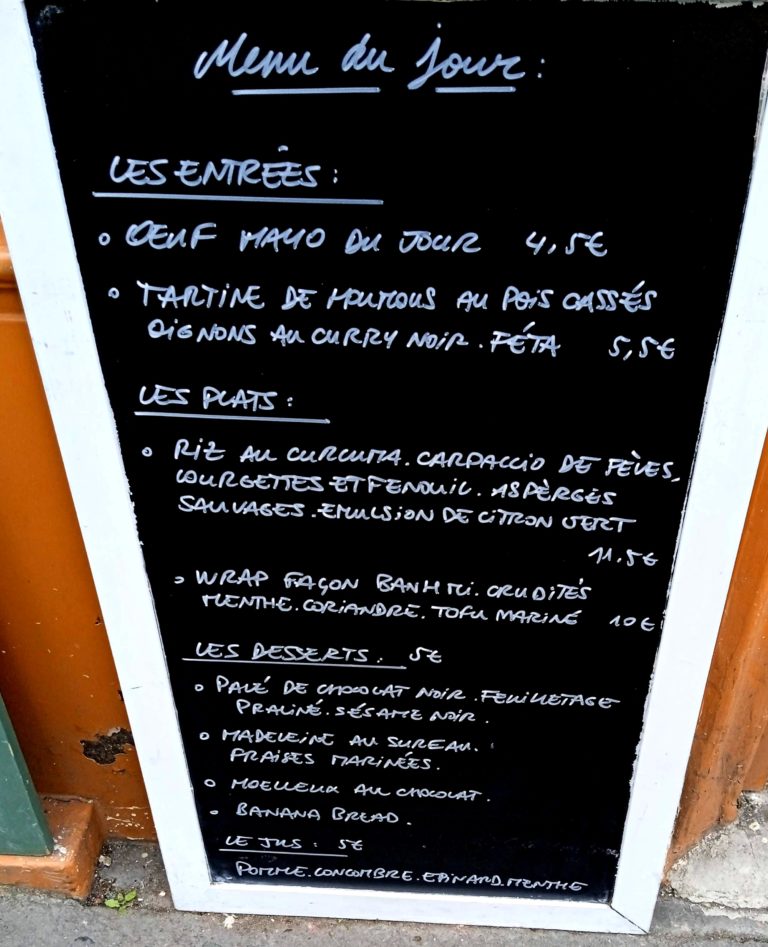 Menu du jour :
LES ENTRÉES :
OEUF MAYO DU JOUR 4,5€
TARTINE DE HOUMOUS AU POIS CASSÉS
OIGNONS AU CURRY NOIR. FÉTA 5,5€
LES PLATS :
RIZ AU CURCUMA. CARPACCIO DE FÈVES,
COURGETTES ET FENOUIL. ASPERGES
SAUVAGES. EMULSION DE CITRON VERT
11.5€
WRAP FAÇON BANH MI. CRUDITÉS
MENTHE. CORIANDRE. TOFU MARINÉ 10€
LES DESSERTS : 5€
PAVÉ DE CHOCOLAT NOIR. FEUILLETAGE
PRALINÉ. SÉSAME NOIR.
MADELEINE AU SUREAU.
FRAISES MARINÉES.
MOELLEUX AU CHOCOLAT.
BANANA BREAD.
LE JUS : 5€
POMME. CONCOMBRE. EPINARD. MENTHE